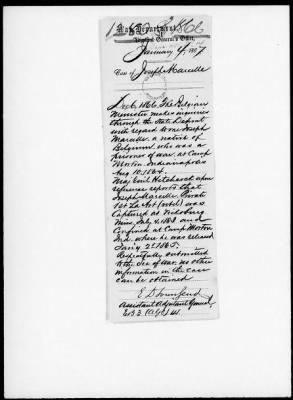 War Department,
Adjutant General's Office,
January 4, 1867
Case of Joseph Marcelle
Dec 6. 1866. The Belgian
Minister makes inquiries
through the State Depmt
with regard to one Joseph
Marcelle, a native of
Belgium, who was a
prisoner of war, at Camp
Morton, Indianapolis
Aug 10. 1864.
Maj Emil Hitchcock upon
reference reports that
Joseph Marcelle, Private
1st La Art (rebel) was
Captured at Vicksburg
Miss July 4, 1863 and
Confined at Camp Morton
Ind. where he was released
Jan'y 2d 1865.
Respectfully submitted
to the Sec of War, no other
information in the case
can be obtained
E. D. Townsend
Assistant Adjutant General